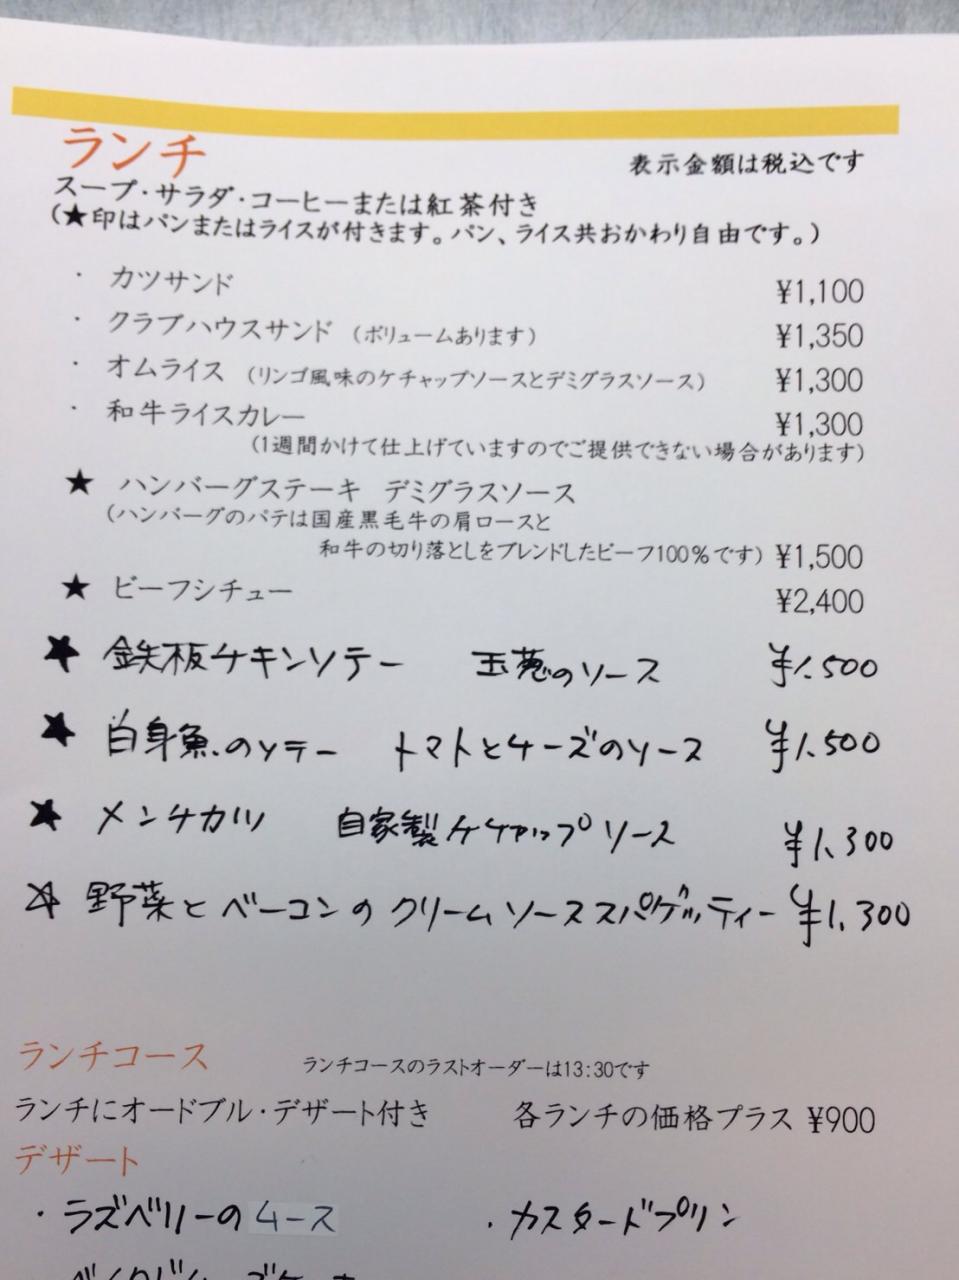 ランチ
表示金額は税込です
スープ・サラダ・コーヒーまたは紅茶付き
(★印はパンまたはライスが付きます。パン、ライス共おかわり自由です。)
・ カツサンド ¥1,100
・ クラブハウスサンド (ボリュームあります) ¥1,350
・ オムライス (リンゴ風味のケチャップソースとデミグラスソース) ¥1,300
・ 和牛ライスカレー ¥1,300
(1週間かけて仕上げていますのでご提供できない場合があります)
★ ハンバーグステーキ デミグラスソース
(ハンバーグのパテは国産黒毛牛の肩ロースと
和牛の切り落としをブレンドしたビーフ100%です) ¥1,500
★ ビーフシチュー ¥2,400
★ 鉄板チキンソテー 玉葱のソース ¥1.500
★ 白身魚のソテー トマトとチーズのソース ¥1.500
★ メンチカツ 自家製ケチャップソース ¥1.300
☆ 野菜とベーコンのクリームソーススパゲッティー ¥1.300
ランチコース ランチコースのラストオーダーは13:30です
ランチにオードブル・デザート付き 各ランチの価格プラス ¥900
デザート
・ラズベリーのムース ・カスタードプリン